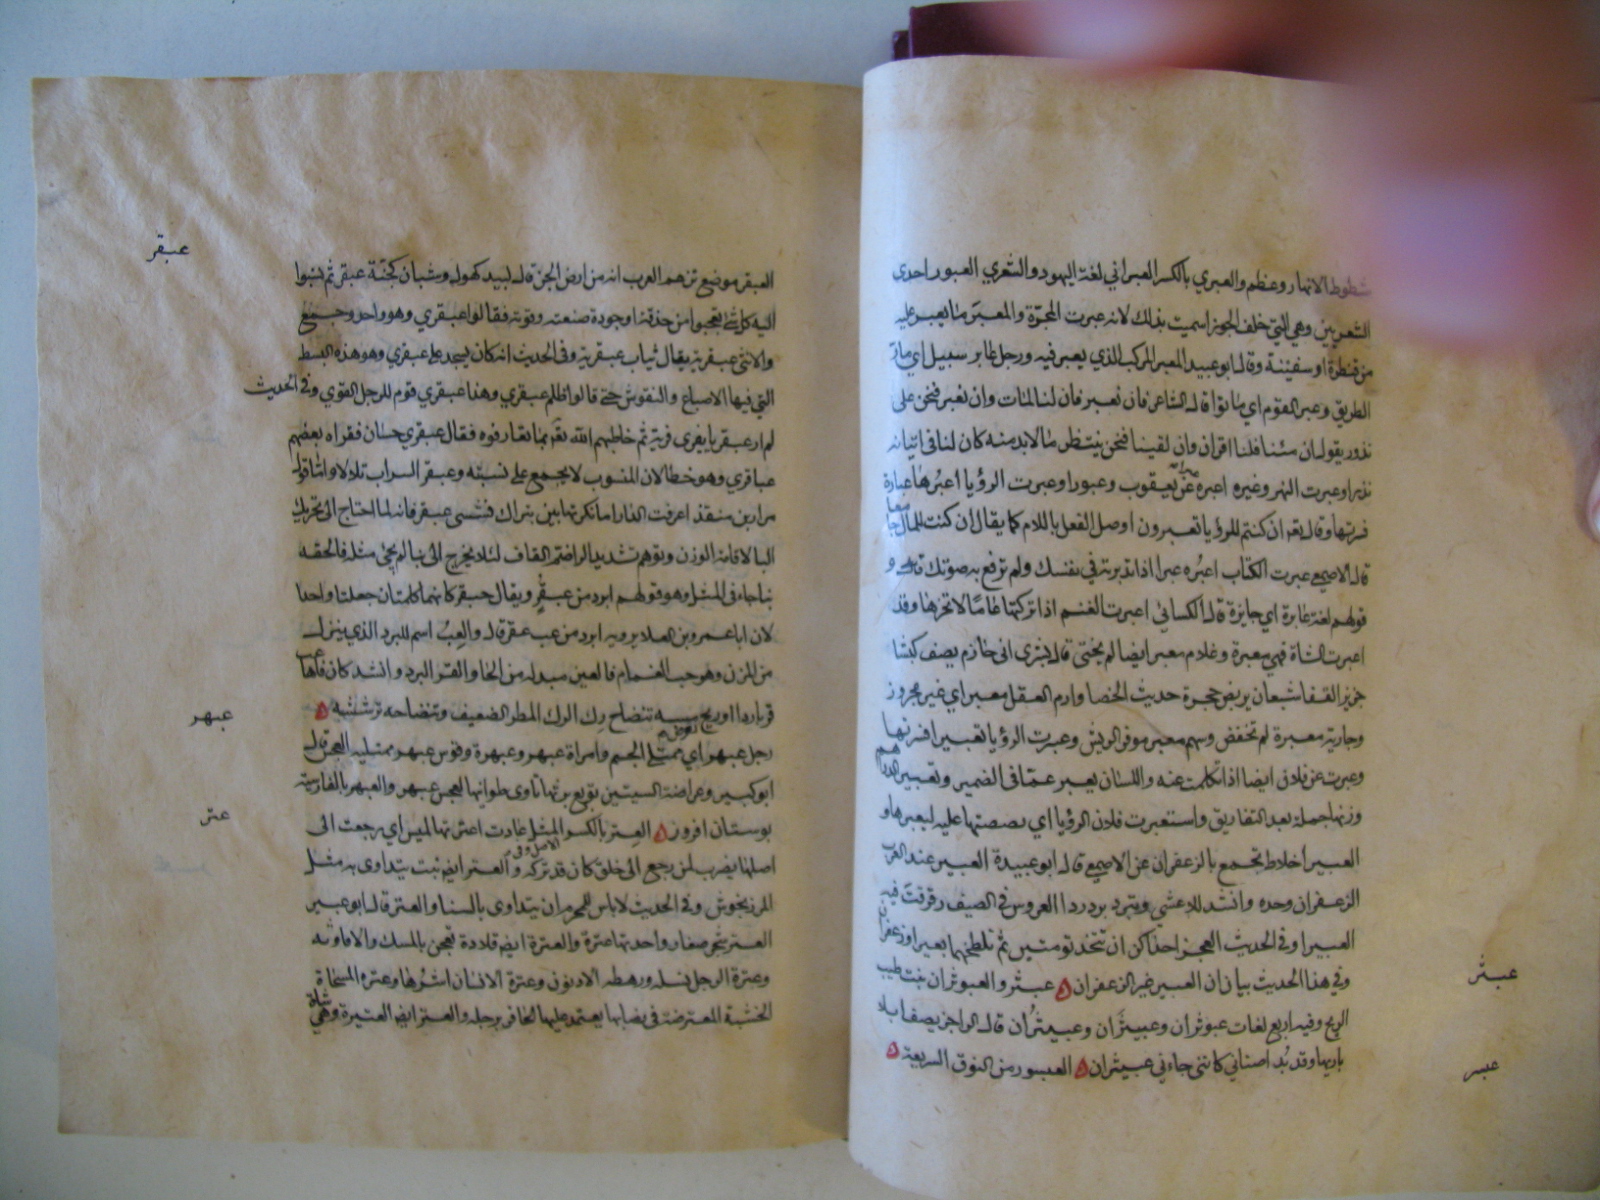 شطوط الانهار وعظم والعبري بالكسر العبراني لغة اليهود والشعري العبور احدى
الشعريين وهي التي خلف الجوزا سميت بذلك لانه عبرت المجرة والمعبر ما يعبر عليه
من قنطرة او سفينة وقال ابو عبيد المعبر المركب الذي يعبر فيه ورجل عابر سبيل اي مار
الطريق وعبر القوم اي ماتوا قال الشاعر فان نعبر فان لنا لمات وان نعبر فنحن على
نذور يقول ان متنا فلنا اقران وان بقينا فنحن ننتظر ما لا بد منه كان لنا في اتيانه
نذرا وعبرت النهر وغيره اعبره عبرا عن يعقوب وعبورا وعبرت الرؤيا أعبُرها عبارة
فسرتها وقال تعه ان كنتم للرؤيا تعبرون اوصل الفعل باللام كما يقال ان كنت للمال جامعا
قال الاصمعي عبرت الكتاب اعبُره عبرا اذا تدبرته في نفسك ولم ترفع به صوتك و
قولهم لغة عابرة اي جايزة قال الكسائي اعبرت الغنم اذا تركتها عاما لا تجزها وقد
اعبرت الشاة فهي معبرة وغلام معبر ايضا لم يختن قال بشر بن ابي خازم يصف كبشا
جزيز القفا شبعان يربض حجرة حديث الخصا وارم العفل معبر اي غير مجزوز
وجارية معبرة لم تخفض وسهم معبر موفر الريش وعبرت الرؤيا تعبيرا فسرتها
وعبرت عن فلان ايضا اذا تكلمت عنه واللسان يعبر عما في الضمير وتعبير الدراهم
وزنها جملة بعد التفاريق واستعبرت فلان الرؤيا اي قصصتها عليه ليعبرها و
العبير اخلاط تجمع بالزعفران عن الاصمعي قال ابو عبيدة العبير عند العرب
الزعفران وحده وانشد للاعشى وتبرد برد ردا العروس في الصيف رقرقت فيه
العبيرا وفي الحديث اتعجز احداكن ان تتخذ تومتين ثم تلطخهما بعبير او زعفران
وفي هذا الحديث بيان ان العبير غير الزعفران ۵ عبثر والعبوثران نبت طيب
الريح وفيه اربع لغات عبوثران وعبيثَران وعبيثُران قال الراجز يصف ابلا
ياريها وقد بدا صناني كانني جاءني عبيثران ۵ العبسور من النوق السريعة ۵
عبثر
عبسر
العبقر موضع تزعم العرب انه من ارض الجن قال لبيد كهول وشبان كجنة عبقر ثم نسبوا
اليه كل شئ تعجبوا من حذقه او جودة صنعته وقوته فقالوا عبقري وهو واحد وجمع
والانثى عبقرية يقال ثياب عبقرية وفي الحديث انه كان يسجد على عبقري وهو هذه البسط
التي فيها الاصباغ والنقوش حتى قالوا ظلم عبقري وهذا عبقري قوم للرجل القوي وفي الحديث
لم ار عبقريا يفري فريه ثم خاطبهم الله تعه بما تعارفوه فقال عبقري حسان فقراه بعضهم
عباقري وهو خطا لان المنسوب لا يجمع على نسبته وعبقر السراب تلالا واما قول
مرار بن منقذ اعرفت الدار ام انكرتها بين تبراك فشسى عبقر فانه لما احتاج الى تحريك
البا لاقامة الوزن وتوهم تشديد الرا ضم القاف لئلا يخرج الى بنا لم يجئ مثله فالحقه
بنا جاء في المثل وهو قولهم ابرد من عبقر ويقال حبقر كانهما كلمتان جعلتا واحدا
لان ابا عمرو بن العلا يرويه ابرد من عب قر قال والعب اسم للبرد الذي ينزل
من المزن وهو حب الغمام فالعين مبدلة من الحا والقر البرد وانشد كان فاها عب
قر باردا او ريح تنضاح رك الرك المطر الضعيف وتنضاحه ترششه ۵
رجل عبهر اي ممتلي الجسم وامراة عبهر وعبهرة وقوس عبهر ممتليه العجس قال
ابو كبير وعراضة السيتين توبع بريها تاوى طوائفها لعجس عبهر والعبهر بالفارسية
بوستان افروز ۵ العتر بالكسر الاصل وفي المثل عادت لعترها لميس اي رجعت الى
اصلها يضرب لمن رجع الى خلق كان قد تركه والعتر ايضه نبت يتداوى به مثل
المرزنجوش وفي الحديث لا باس للمحرم ان يتداوى بالسنا والعتر قال ابو عبيد
العتر شجر صغار واحدتها عترة والعترة ايضه قلادة تعجن بالمسك والافاويه
وعترة الرجل نسله ورهطه الادنون وعترة الاسنان اشرها وعتره المسحاة
الخشبة المعترضة في نصابها يعتمد عليها الحافر برجله والعتر ايضه العتيرة وهي شاة
عبقر
عبهر
عتر